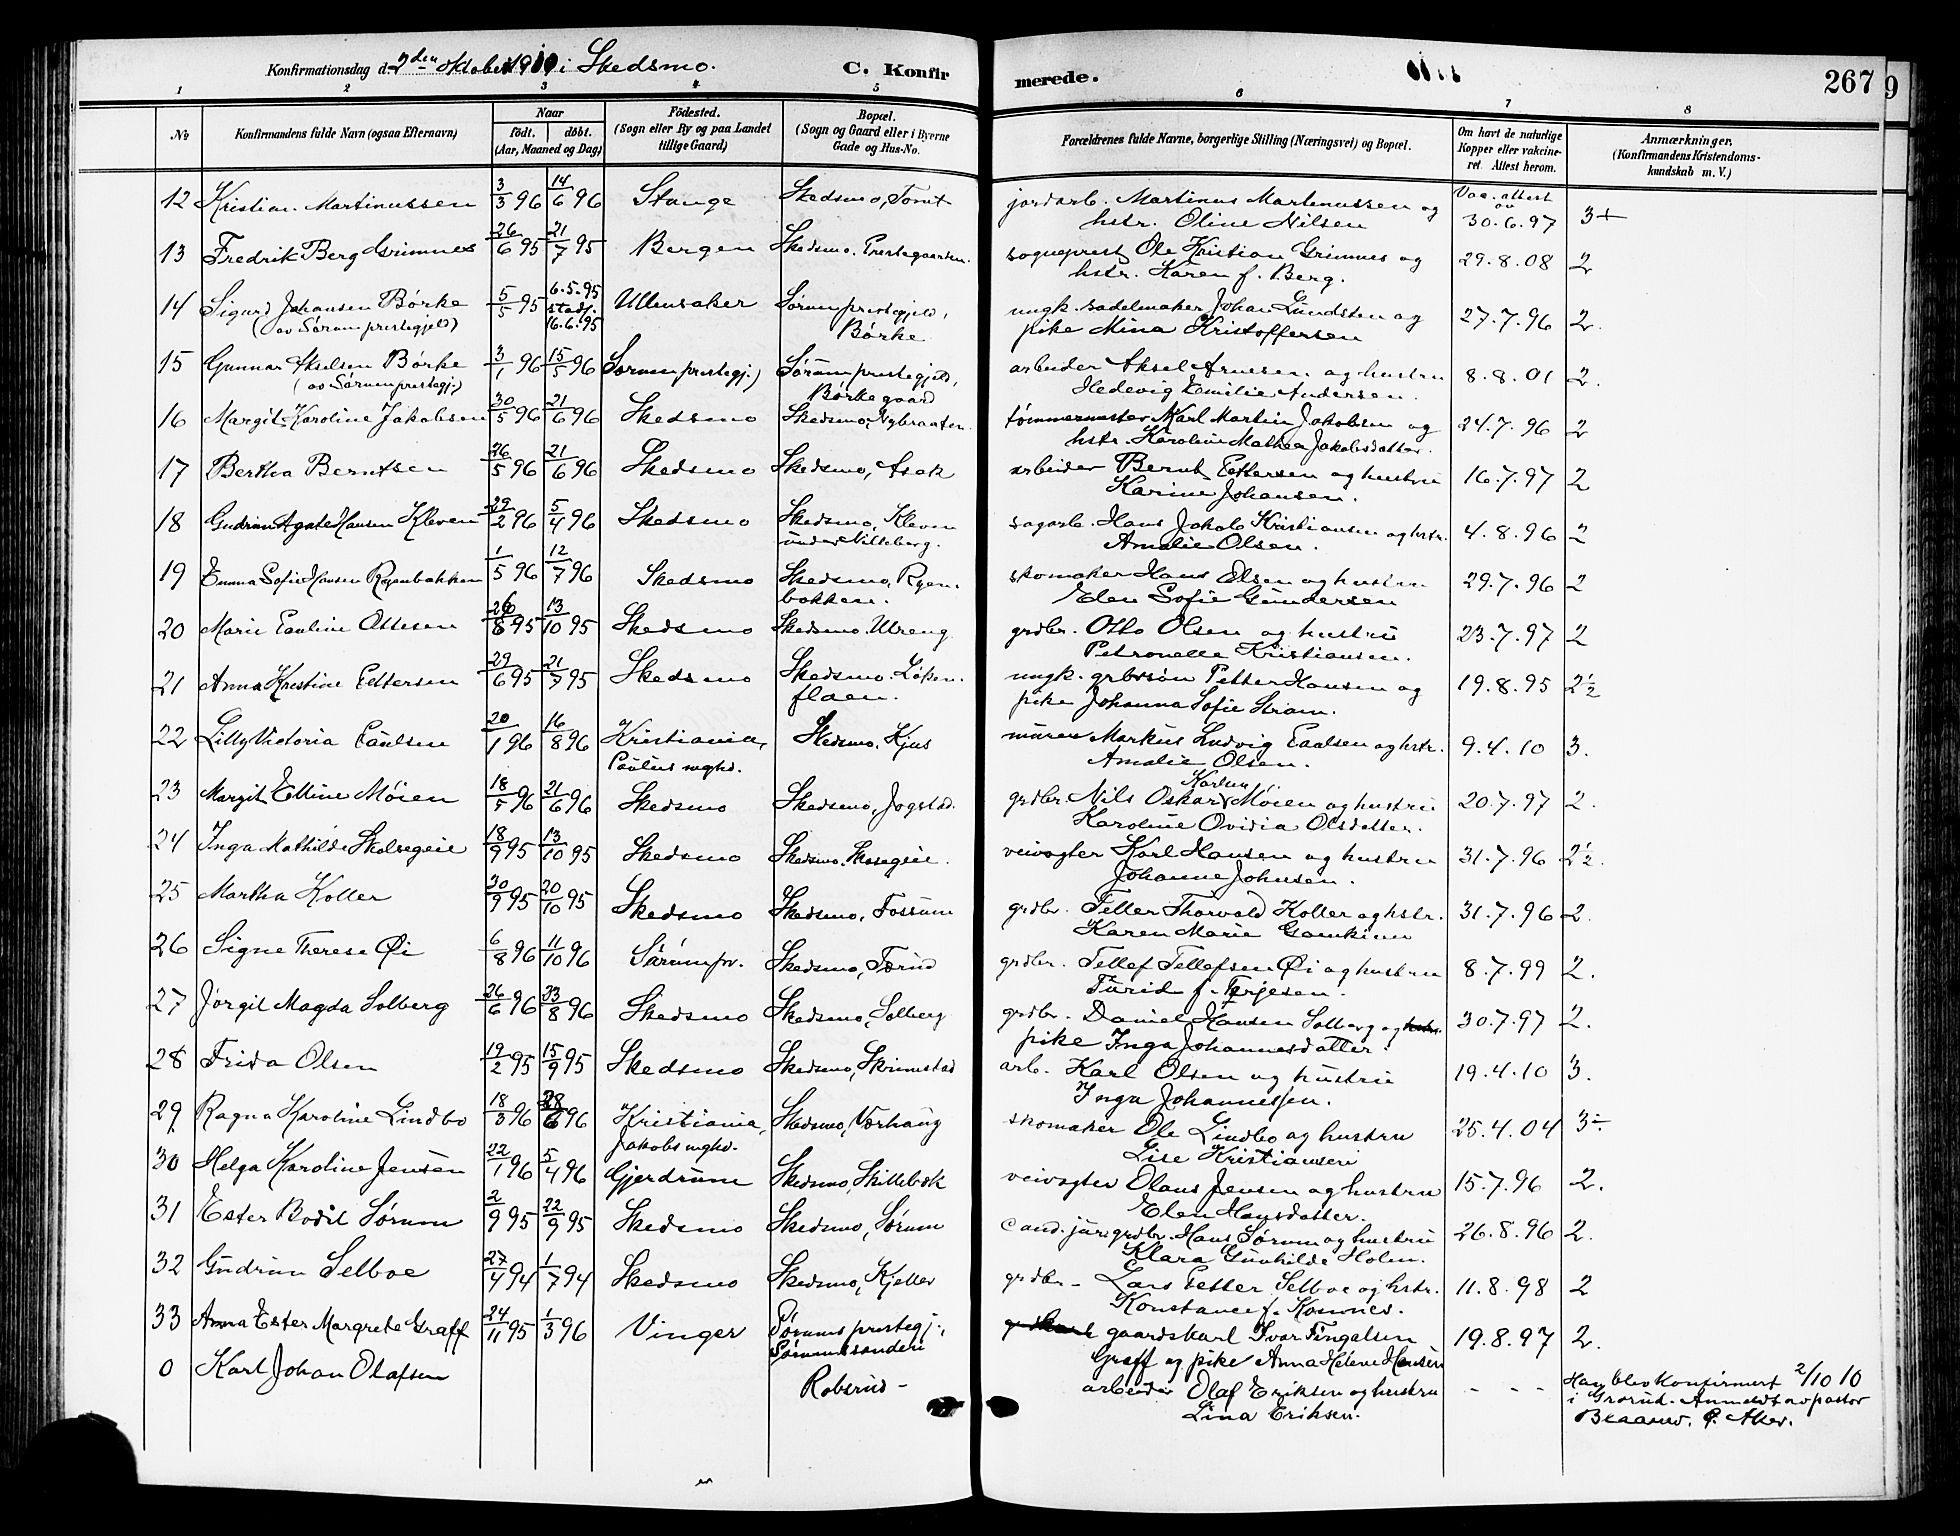 Konfirmationsdag d. 2den oktober 1910 i Skedsmo. C. Konfir
merede. 267
9
1 2 3 4 5 6 7 8
No
Konfirmandens fulde Navn (ogsaa Efternavn)
Naar
født. døbt.
(Aar, Maaned og Dag)
Fødested.
(Sogn eller By og paa Landet
tillige Gaard)
Bopæl.
(Sogn og Gaard eller i Byerne
Gade og Hus-No.
Forældrenes fulde Navne, borgerlige Stilling (Næringsvei) og Bopæl.
Om havt de naturlige
Kopper eller vakcine-
ret. Attest herom.
Anmærkninger.
(Konfirmandens Kristendoms-
kundskab m. V.)
12 Kristian Martinussen 3/3 96 14/6 96 Stange Skedsmo, Tomt jordarb. Martinus Martinussen og Vac. attest av
hstr. Oline Nilsen 30.6.97 3+
13 Fredrik Berg Grimnes 26/6 95 21/7 95 Bergen Skedsmo. Prestegaarden. sogneprest Ole Kristian Grimnes og 29.8.08 2
hstr. Karen f. Berg.
14 Sigurd Johansen Børke 5/5 95 6.5.95 Ullensaker Sørum prestegjeld, ungk. sadelmaker Johan Lundsten og 27.7.96 2.
(av Sørum prestegjeld) stadf. 16.6.95 Børke pike Mina Kristoffersen
15 Gunnar Akselsen Børke 3/1 96 15/5 96 Sørum prestegj.) Sørum prestegjeld, arbeider Aksel Arnesen og hustru 8.8.01 2.
(av Sørum prestegj.) Børke gaard Hedevig Emilie Andersen.
16 Margit Karoline Jakobsen 30/5 96 21/6 96 Skedsmo Skedsmo, Nybraaten tømmermester Karl Martin Jakobsen og 24.7.96 2
hstr. Karoline Mathea Jakobsdatter.
17 Bertha Berntsen 26/5 96 21/6 96 Skedsmo Skedsmo, Asak arbeider Bernt Pettersen og hustru 16.7.97 2
Karine Johansen.
18 Gudrun Agate Hansen Kleven 29/2 96 5/4 96 Skedsmo Skedsmo, Kleven sagarb. Hans Jakob Kristiansen og hstr. 4.8.96 2
under Nitteberg. Amalie Olsen.
19 Emma Sofie Hansen Ryenbakken 1/5 96 12/7 96 Skedsmo Skedsmo, Ryen- skomaker Hans Olsen og hustru 29.7.96 2
bakken. Elen Sofie Gundersen
20 Marie Pauline Ottesen 26/8 95 13/10 95 Skedsmo Skedsmo. Ulreng grdbr. Otto Olsen og hustru 23.7.97 2
Petronelle Kristiansen.
21 Anna Kristine Pettersen 29/6 95 21/7 95 Skedsmo Skedsmo. Løken- ungk. grbrsøn Petter Hansen og 19.8.95 2½
flaen. pike Johanna Sofie Strøm.
22 Lilly Victoria Paulsen 20/1 96 16/8 96 Kristiania, Skedsmo. Kjus murer Markus Ludvig Paulsen og hstr. 9.4.10 3.
Paulus mghd. Amalie Olsen.
23 Margit Elline Moen 18/5 96 21/6 96 Skedsmo Skedsmo, Jogstad. grdbr. Nils Oskar Karlsen Moen og hustru 20.7.97 2.
Karoline Ovidia Olsdatter.
24 Inga Mathilde Skolsegeie 18/9 95 13/10 95 Skedsmo Skedsmo. Skosegeie. veivogter Karl Hansen og hustru 31.7.96 2½.
Johanne Johnsen.
25 Martha Koller 30/9 95 20/10 95 Skedsmo Skedsmo, Fossum grdbr. Teller Thorvald Koller og hstr. 31.7.96 2.
Karen Marie
26 Signe Therese Øi 6/8 96 11/10 96 Sørum pr. Skedsmo, Farud grdbr. Tellef Tellefsen Øi og hustru 8.7.99 2.
Turid f. Terjesen.
27 Jørgil Magda Solberg 26/6 96 23/8 96 Skedsmo Skedsmo, Solberg grdbr. Daniel Hansen Solberg og hstr. 30.7.97 2.
pike Inga Johannesdatter.
28 Frida Olsen 19/2 95 15/9 95 Skedsmo Skedsmo, Skrimstad arb. Karl Olsen og hustru 19.4.10 3.
Inga Johannessen.
29 Ragna Karoline Lindbo 18/3 96 28/6 96 Kristiania, Skedsmo, Vørhaug skomaker Ole Lindbo og hustru 25.4.04 3÷
Jakobs mghd. Lise Kristiansen
30 Helga Karoline Jensen 22/1 96 5/4 96 Gjerdrum Skedsmo, Skillebæk veivogter Olaus Jensen og hustru 15.7.96 2.
Elen Hansdatter.
31 Ester Bodil Sørum 2/9 95 22/9 95 Skedsmo Skedsmo, Sørum cand. jur. grdbr. Hans Sørum og hustru 26.8.96 2.
Klara Gunhilde Holm.
32 Gudrun Selboe 27/4 94 1/7 94 Skedsmo Skedsmo, Kjeller grdbr. Lars Petter Selboe og hstr. 11.8.98 2
Konstance f. Komnes.
33 Anna Ester Margrete Graff 24/11 95 1/3 96 Vinger Sørums prestegj., gaardskarl Ivar Fingalsen 19.8.97 2.
Sørumssanden Graff og pike Anna Helene Hansen
0 Karl Johan Olafsen Robsrud arbeider Olaf Eriksen og hustru - - - Han blev konfirmert 2/10 10
Lina Eriksen. i Grorud. Anmeldt av pastor
Blaauw, Ø. Aker.